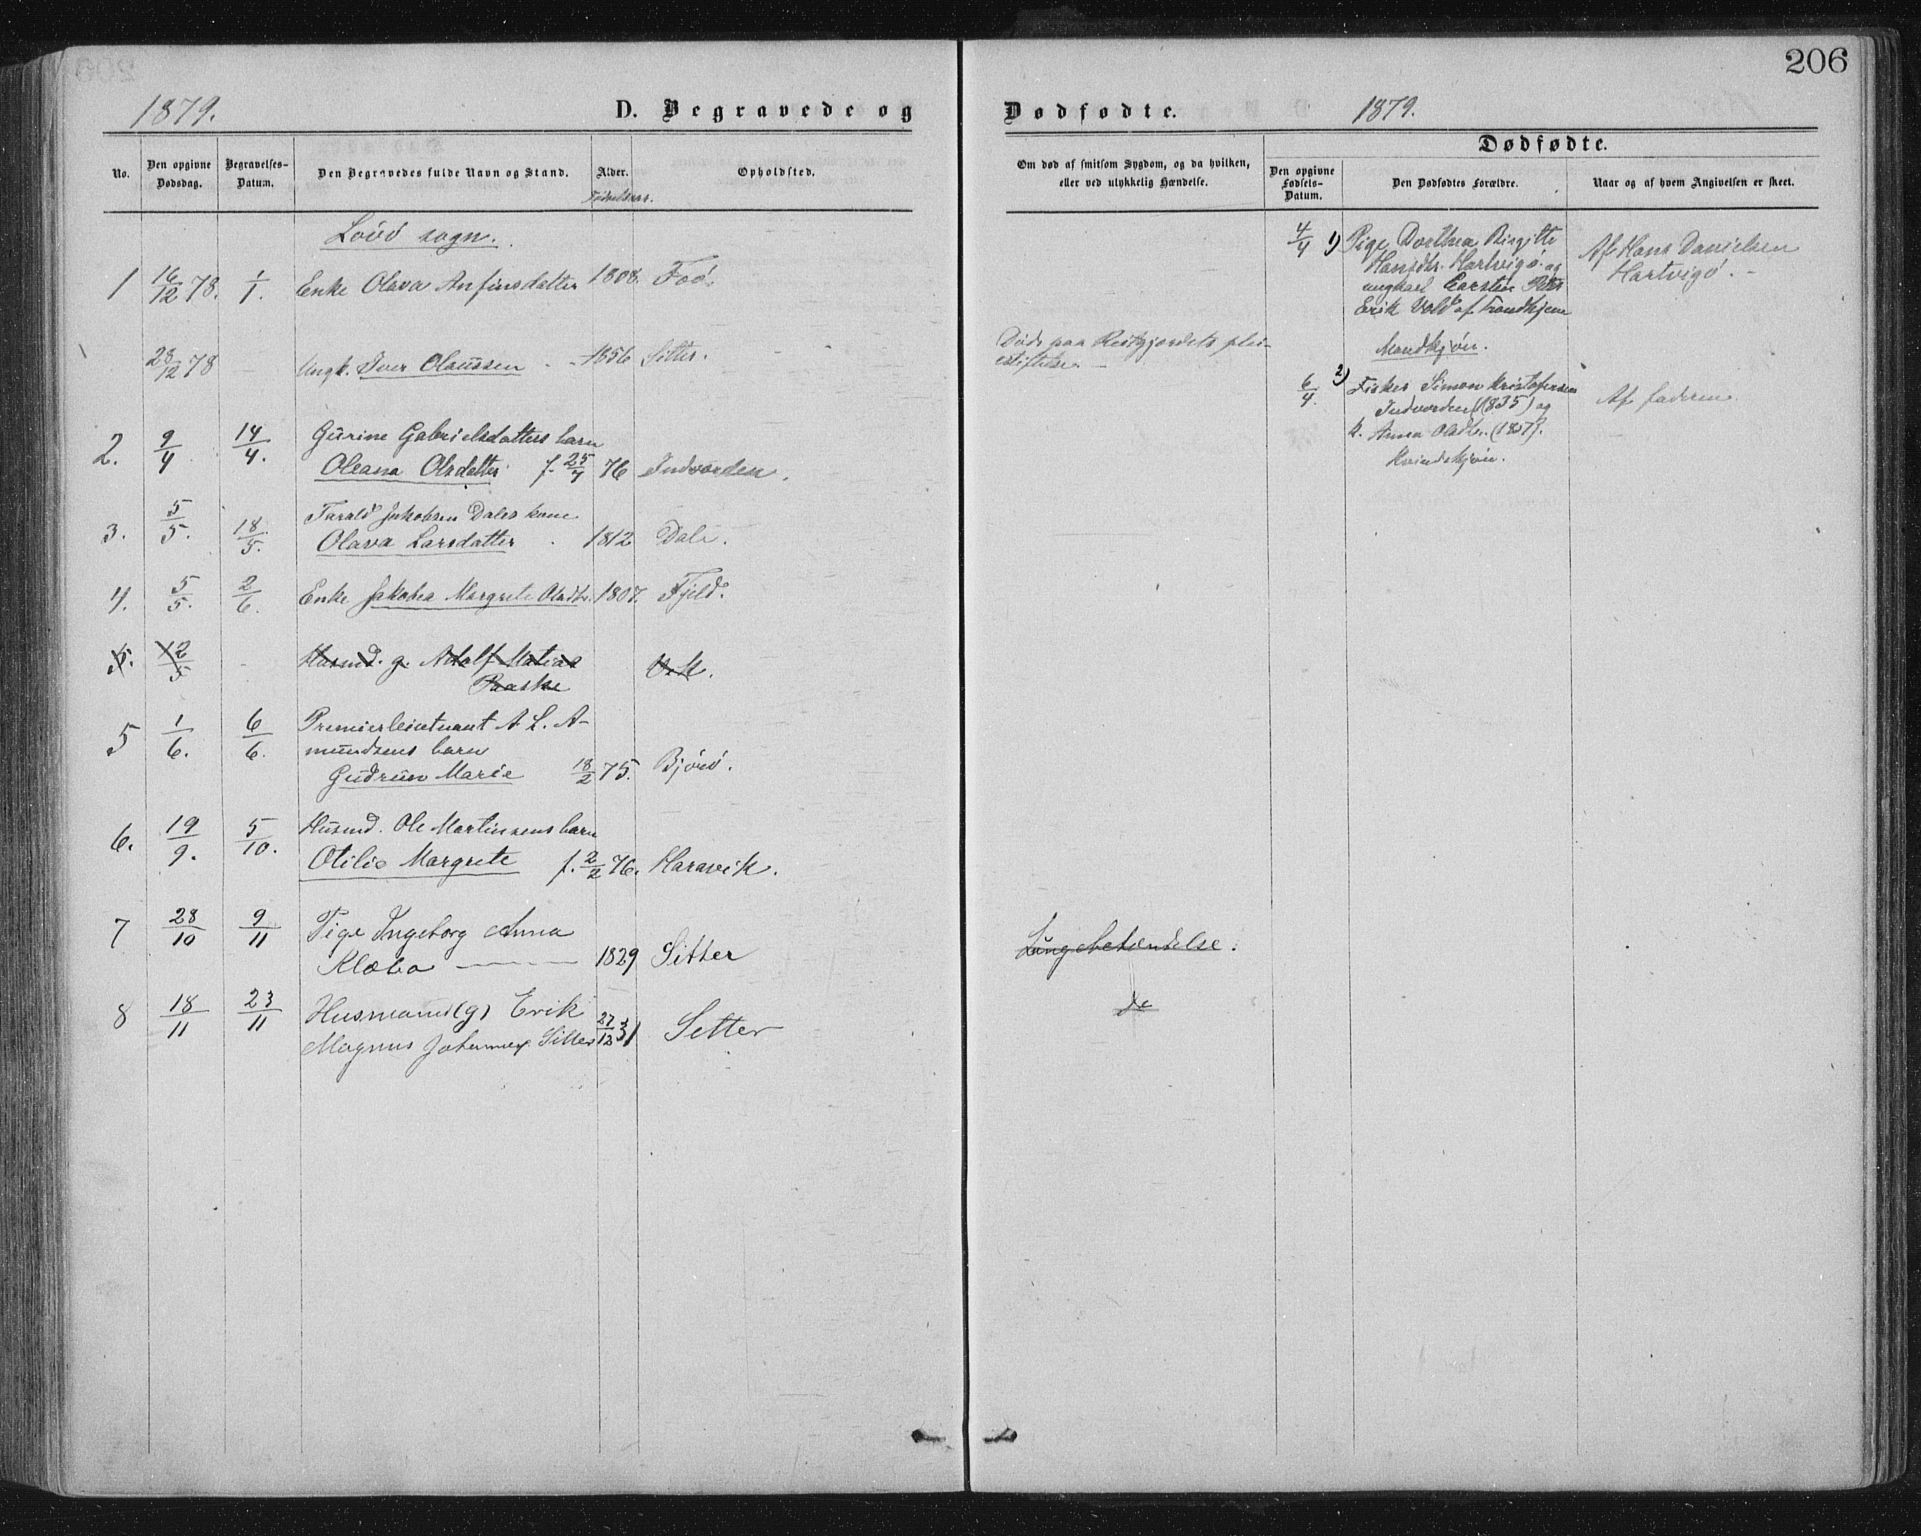 206
1879.
D. Begravede og
Dødfødte.
1879.
No.
Den opgivne Dødsdag.
Begravelses-Datum.
Den Begravedes fulde Navn og Stand.
Alder.
Fødselsaar.
Opholdsted.
Om død af smitsom Sygdom, og da hvilken,
eller ved ulykkelig Hændelse.
Dødfødte.
Den opgivne Fødsels-Datum.
Den Dødfødtes Forældre.
Naar og af hvem Angivelsen er skeet.
Lövö sogn.
1 16/12 78. 1/1. Enke Olava Anfinsdatter 1808. Foö.
28/12 78 Ungk. Iver Olaussen 1856 Sitter.
Døde paa
2. 9/4 14/4. Gurine Gabrielsdatters barn
Oleana Olsdatter f. 25/7 76 Indvorden.
3. 5/5. 18/5. Tarald Jakobsen Dales kone
Olava Larsdatter 1812 Dale.
4. 5/5. 2/6. Enke Jakobea Margrete Olsdtr. 1807. Fjeld.
5. 12/5 Husmd. g. Adolf Matias
5 1/6. 6/6. Premierleintnant A. L. A-
mundsens barn
Gudrun Marie 18/2 75. Bjørø.
6. 19/9. 5/10. Husmd. Ole Martinsens barn
Otilie Margrete f. 2/2 76. Haravik.
7 28/10 9/11 Pige Ingeborg Anna
Klæbo 1829 Sitter Lungebetændelse.
8 18/11 23/11 Husmand (g) Erik
Magnus Johannes. Sitter 27/12 31 Setter do
4/4 1) Pige Dorthea Birgitte
Hansdtr. Hartvigö. og
ungkarl Carsten Peter
Erik Vold af Trondhjem
Mandkjön.
Af Hans Danielsen
Hartvigö.
6/4. 2) Fisker Simon Kristofersen
Indvorden (1835) og
k. Anna Olsdtr. (1837).
Kvindekjön.
Af faderen.